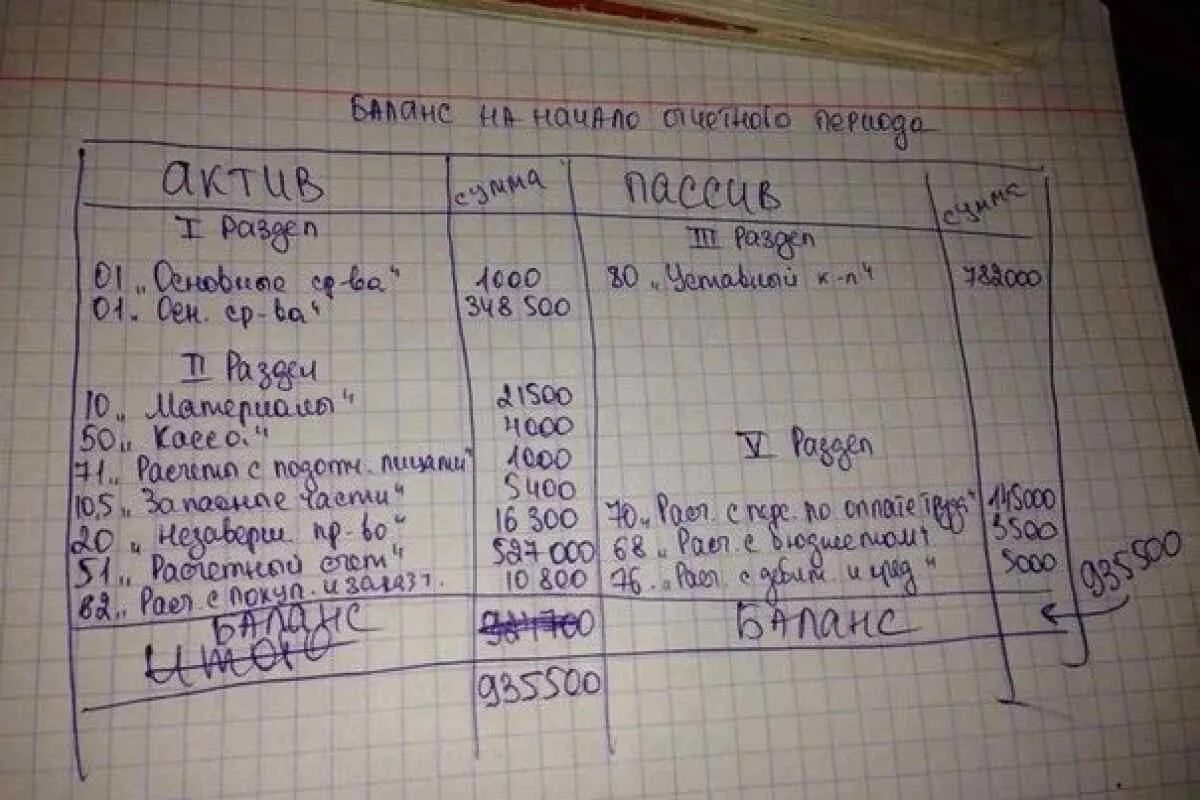 Баланс на начало отчетного периода
Актив сумма Пассив сумма
I Раздел III Раздел
01 „Основные ср-ва“ 1000 80 „Уставный к-л“ 782000
01 „Осн. ср-ва“ 348 500
II Раздел
10 „Материалы“ 21500
50 „Касса“ 4000 V Раздел
71 „Расчеты с подотч. лицами“ 1000
10.5 „Запасные части“ 5400 70 „Расч. с перс. по оплате труда“ 145000
20 „Незаверш. пр-во“ 16 300 68 „Расч. с бюджетом“ 3500
51 „Расчетный счет“ 527 000 76 „Расч. с дебит. и кред“ 5000 935500
62 „Расч. с покуп. и заказч. 10 800
Баланс Баланс
Итого
935500